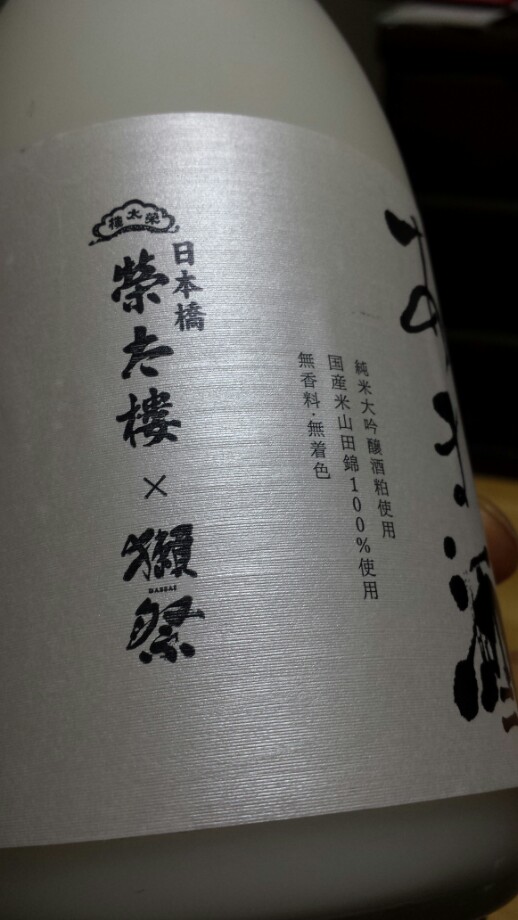 あまさけ
純米大吟醸酒粕使用
国産米山田錦100%使用
無香料・無着色
榮太樓
日本橋
榮太樓
×
獺祭
DASSAI